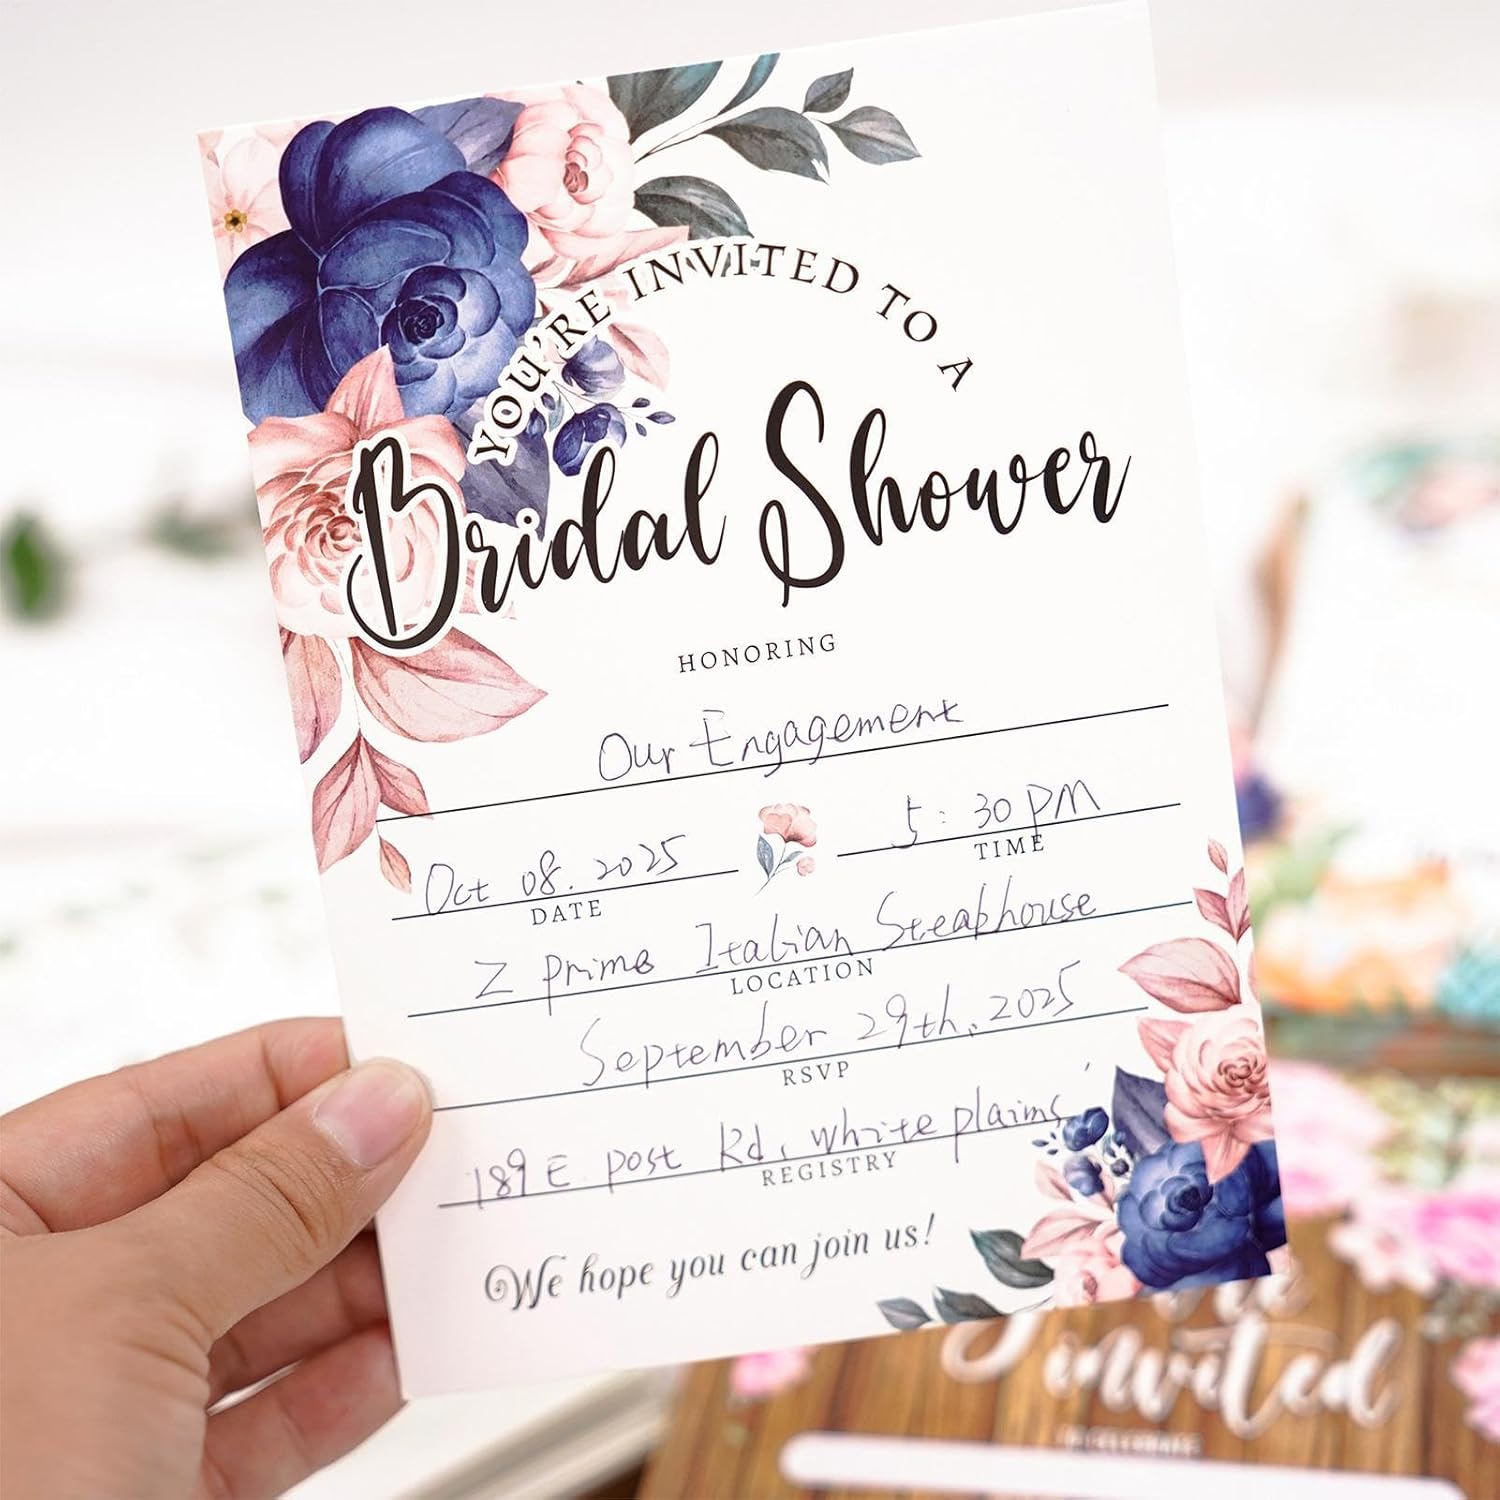 YOU'RE INVITED TO A
Bridal Shower
HONORING
Our Engagement
Oct 08. 2025
5:30 PM
DATE
TIME
Z prime Italian Steakhouse
LOCATION
September 29th, 2025
RSVP
189 E. post Rd, white plaims,
REGISTRY
We hope you can join us!
invited